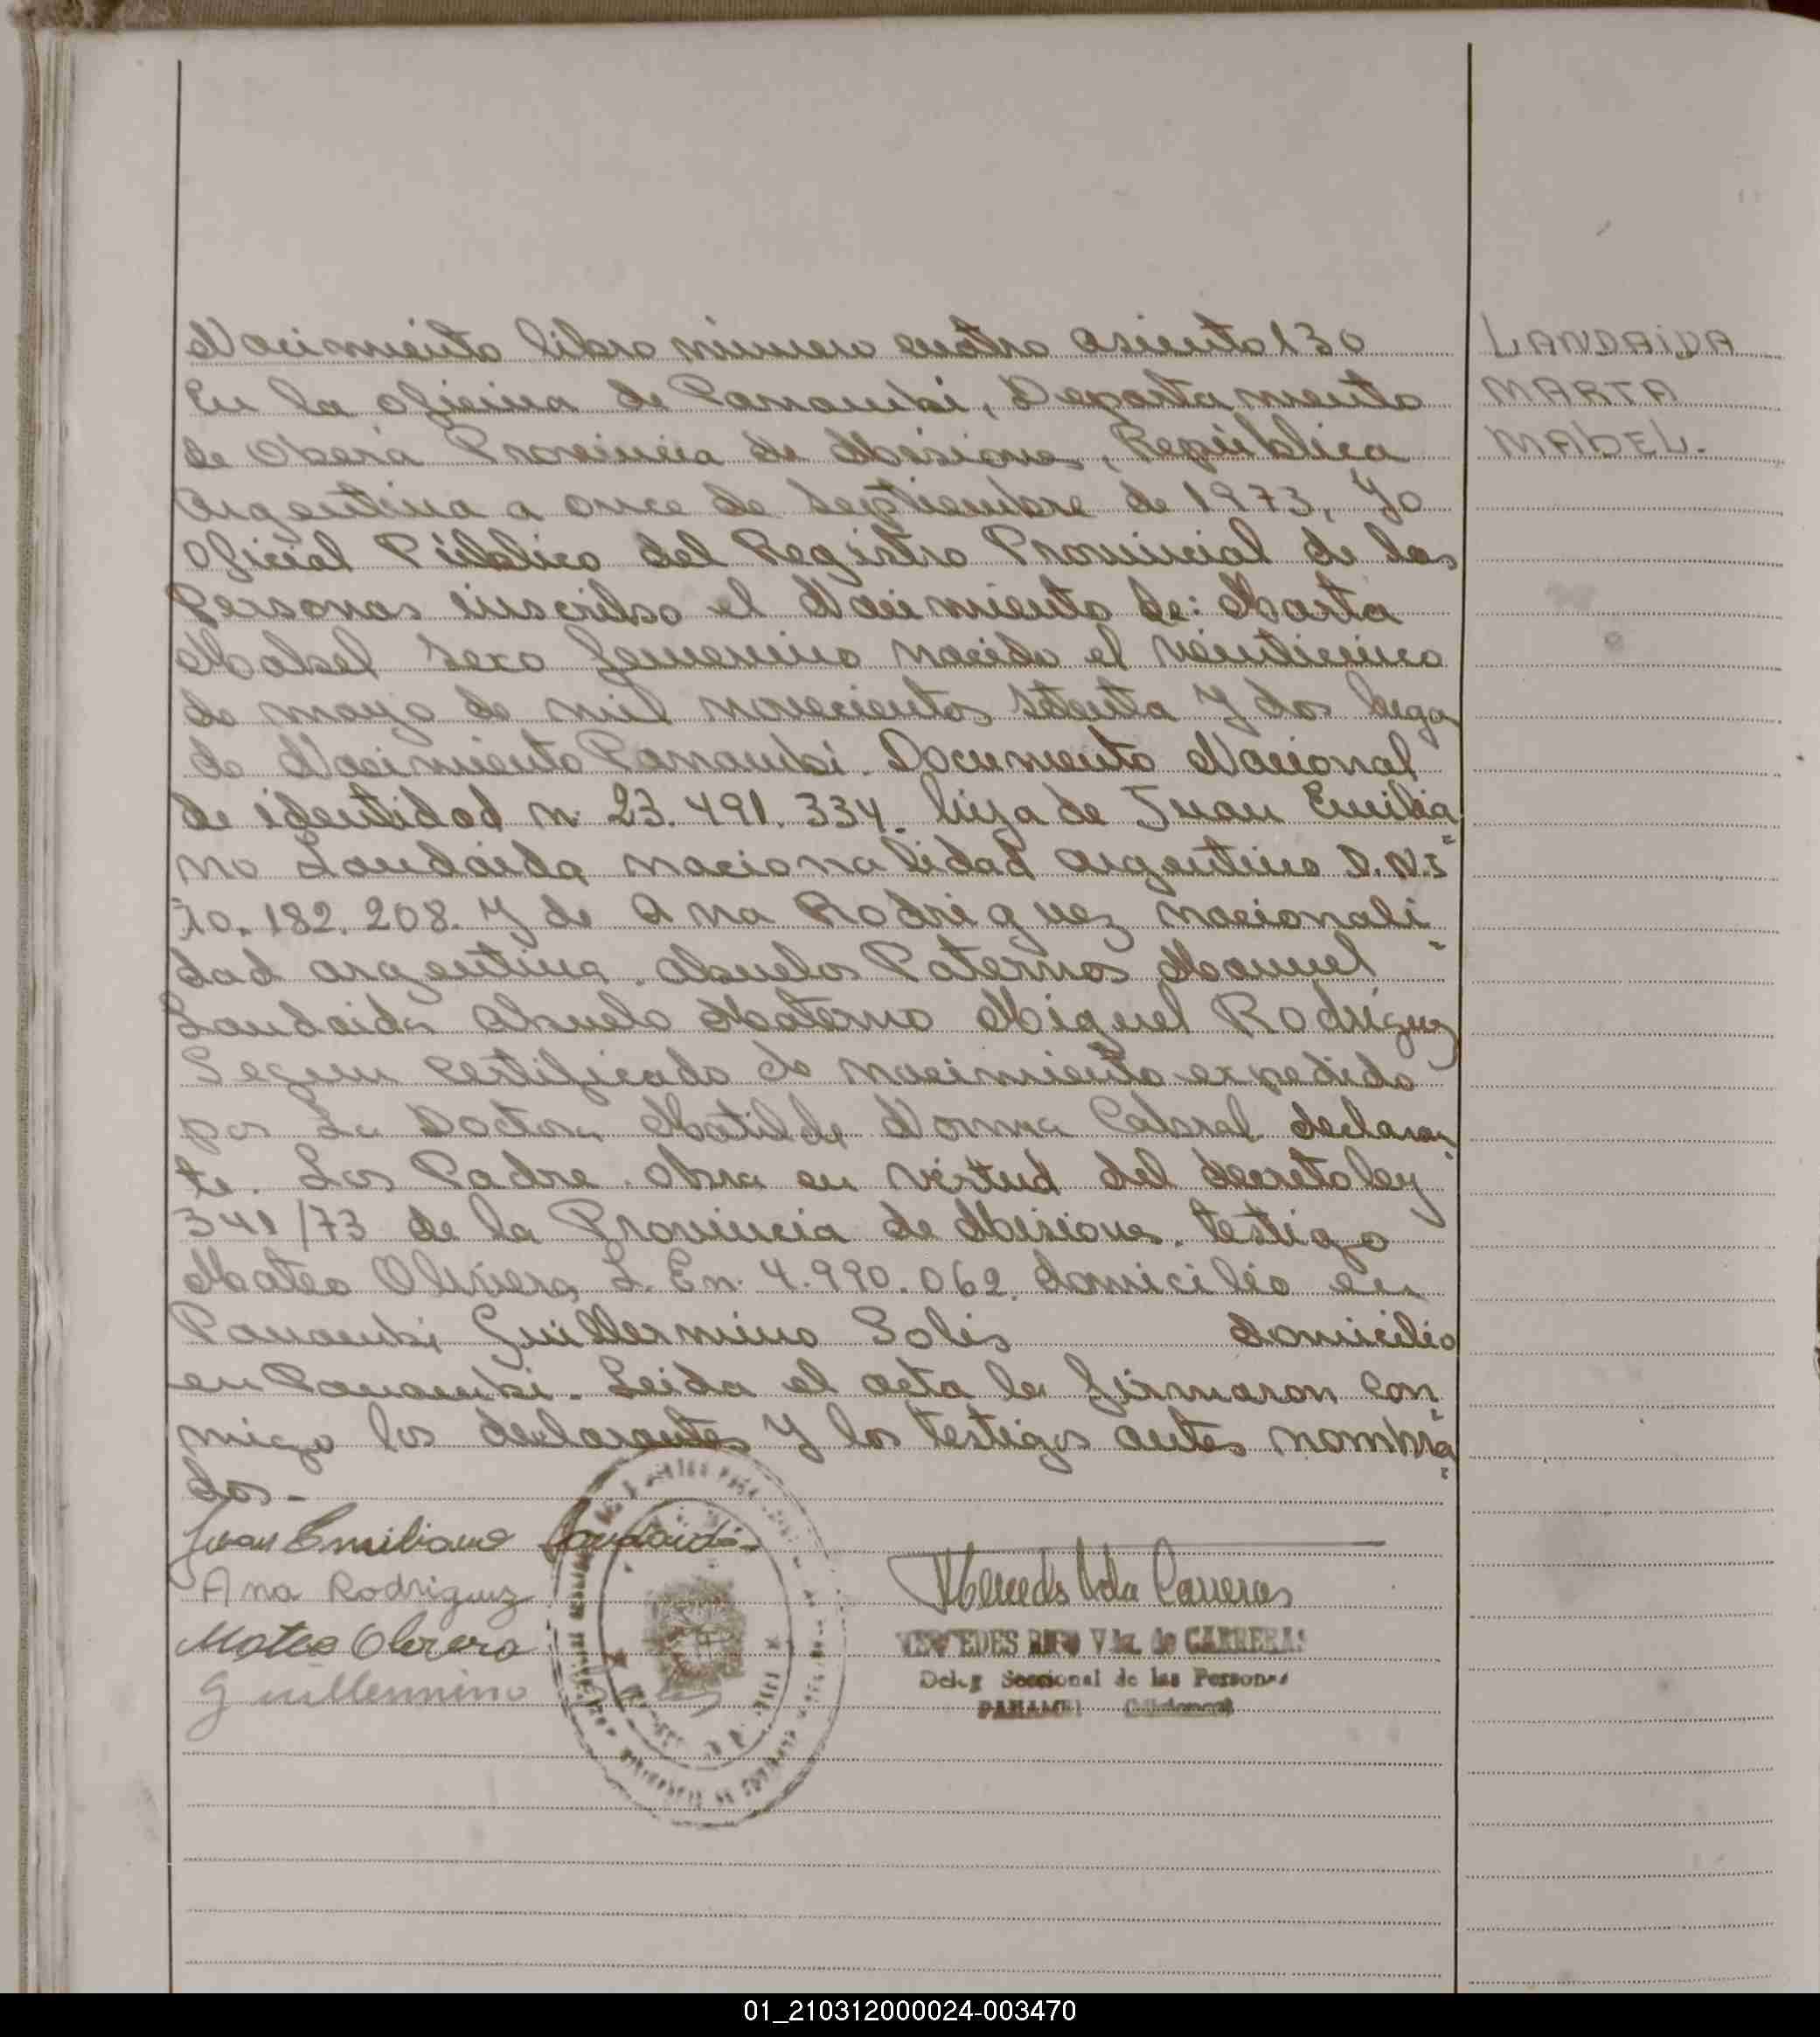 Nacimiento libro número cuatro asiento 130
En la oficina de Panambi, Departamento
de Oberá Provincia de Misiones, República
Argentina a once de Septiembre de 1973, Yo
Oficial Público del Registro Provincial de las
Personas inscribo el Nacimiento de: Marta
Mabel sexo femenino nacido el veinticinco
de mayo de mil novecientos setenta y dos lugar
de Nacimiento Panambi. Documento Nacional
de identidad n. 23.491.334. hija de Juan Emilia
no Landaida nacionalidad argentino D.N.I
10.182.208. y de Ana Rodriguez nacionali
dad argentina. Abuelos Paternos Manuel
Landaida Abuelo Materno Miguel Rodriguez
Segun certificado de nacimiento expedido
por La Doctora Matilde Norma Cabral declaran
te. Los Padre. obra en virtud del decreto ley
341/73 de la Provincia de Misiones. testigo
Mateo Olivera L.E n. 4.990.062. domicilio en
Panambi Guillermino Solis domicilio
en Panambi. Leida el acta la firmaron con
migo los declarantes y los testigos antes nombra
dos.-
Juan Emiliano Landaida
Ana Rodriguez
Mateo Olivera
Guillermino
Carreras
de CARRERAS
Seccional de las Personas
LANDAIDA
MARTA
MABEL.
01_210312000024-003470